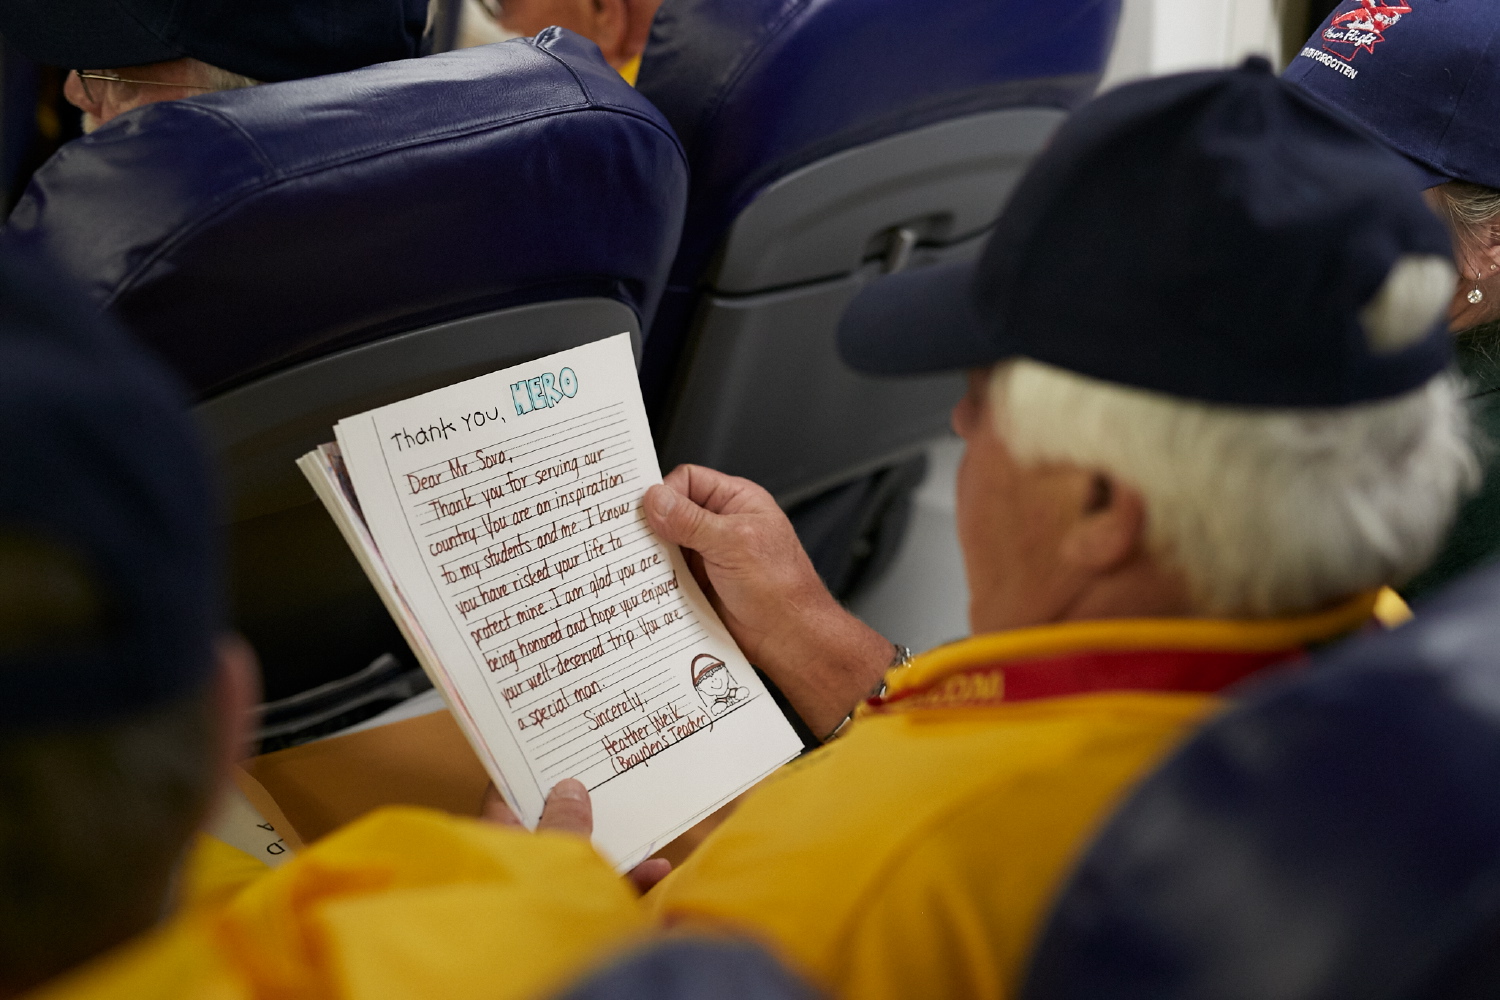 Thank you, HERO
Dear Mr. Sova,
Thank you for serving our
country. You are an inspiration
to my students and me. I know
you have risked your life to
protect mine. I am glad you are
being honored and hope you enjoyed
your well-deserved trip. You are
a special man.
Sincerely,
Heather Weik
(Brayden's Teacher)
Honor Flight
FORGOTTEN